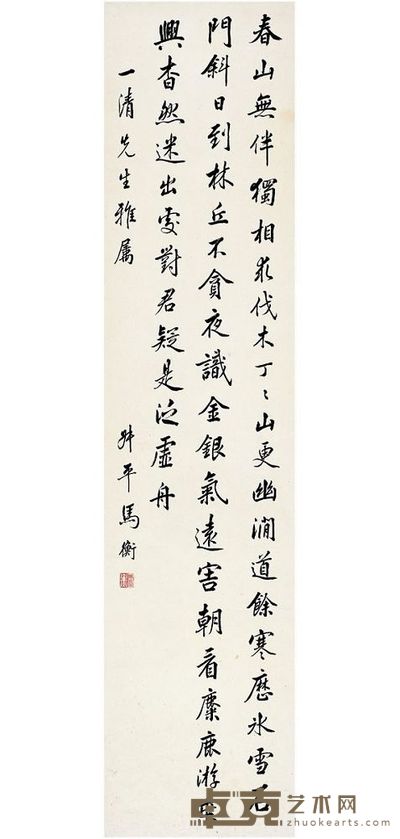 春山無伴獨相求伐木丁〻山更幽澗道餘寒歷冰雪石
門斜日到林丘不貪夜識金銀氣遠害朝看麋鹿游乘
興杳然迷出處對君疑是泛虛舟
一清先生雅屬
叔平馬衡
卓克艺术网
zhuokearts.com